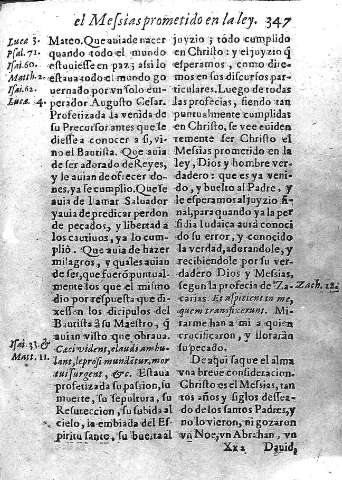 el Messias prometido en la ley. 347
Luca 3.
Psal. 71.
Isai. 60.
Matth. 2.
Isai. 62.
Luca 4.
Isai. 35. &
Matt. 11.
Mateo. Que auia de nacer
quando todo el mundo
estuuiesse en paz; assi lo
estaua todo el mundo go
uernado por vn solo em-
perador Augusto Cesar.
Profetizada la venida de
su Precursor antes que le
diesse a conocer a si, vi-
no el Bautista. Que auia
de ser adorado de Reyes,
y le auian de ofrecer do-
nes, ya se cumplio. Que se
auia de llamar Saluador
y auia de predicar perdon
de pecados, y libertad a
los cautiuos, ya lo cum-
plió. Que auia de hazer
milagros, y quales auian
de ser, que fueró puntual-
mente los que el mismo
dio por respuesta que di-
xessen los dicipulos del
Bautista a su Maestro, q̃
auian visto que obraua.
Cæci vident, claudi ambu-
lant, leprosi mundãtur, mor
tui surgent, &c. Estaua
profetizada su passion, su
muerte, su sepultura, su
Resurreccion, su subida al
cielo, la embiada del Es-
piritu santo, su buelta al
juyzio; todo cumplido
en Christo: y el juyzio q̃
esperamos, como dire-
mos en sus discursos par-
ticulares. Luego de todas
las profecias, siendo tan
puntualmente cumplidas
en Christo, se vee euiden
temente ser Christo el
Messias prometido en la
ley, Dios y hombre ver-
dadero: que es ya veni-
do, y buelto al Padre, y
le esperamos al juyzio fi-
nal, para quando ya la per
fidia Iudaica aurá conoci
do su error, y conocido
la verdad, adorandole, y
recibiendole por su ver-
dadero Dios y Messias,
segun la profecia de Za-
carias. Et aspicient in me,
quem transfixerunt. Mi-
rarme han a mi a quien
crucificaron, y llorarán
su pecado.
De aqui saque el alma
vna breue consideracion.
Christo es el Messias, tan
tos años y siglos dessea-
do de los santos Padres, y
no lo vieron, ni gozaron
vn Noe, vn Abrahan, vn
Zach. 12.
Xx 2 Dauid,